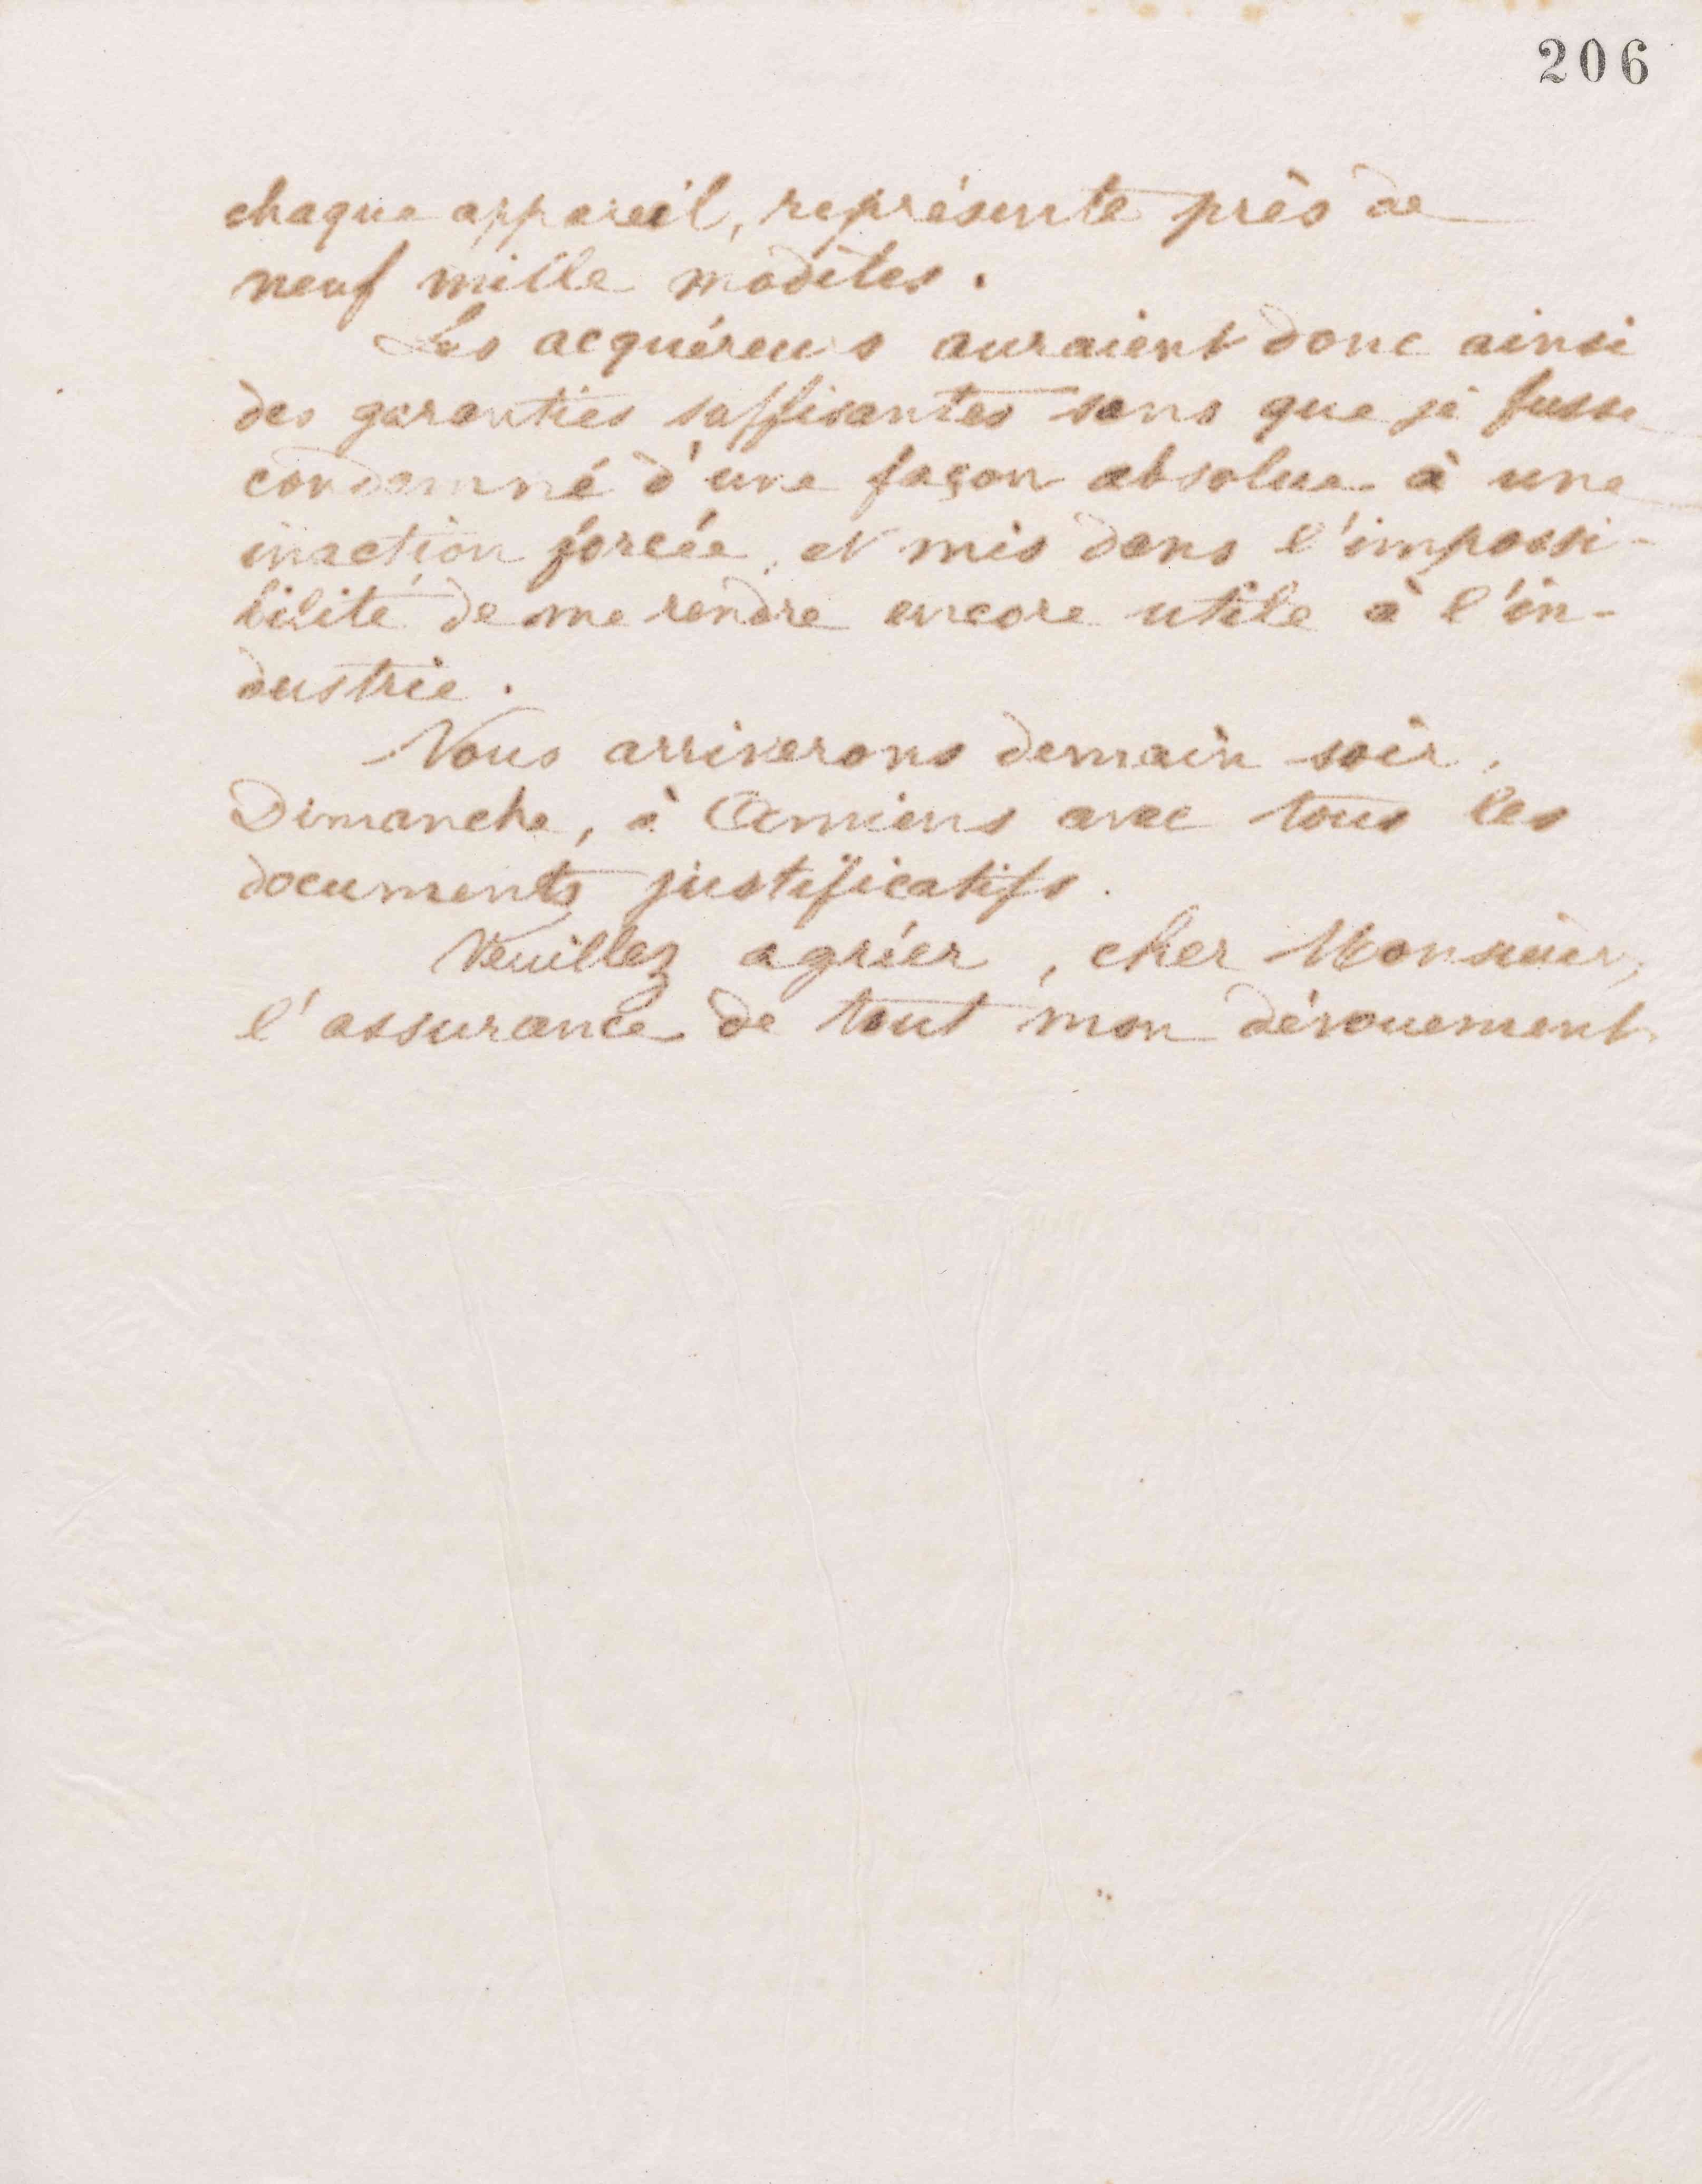 206
chaque appareil, représente près de
neuf mille modèles.
Les acquéreurs auraient donc ainsi
des garanties suffisantes sans que je fusse
condamné d'une façon absolue à une
inaction forcée, et mis dans l'impossi-
bilité de me rendre encore utile à l'in-
dustrie.
Nous arriverons demain soir,
Dimanche, à Amiens avec tous les
documents justificatifs.
Veuillez agréer, cher Monsieur,
l'assurance de tout mon dévouement.